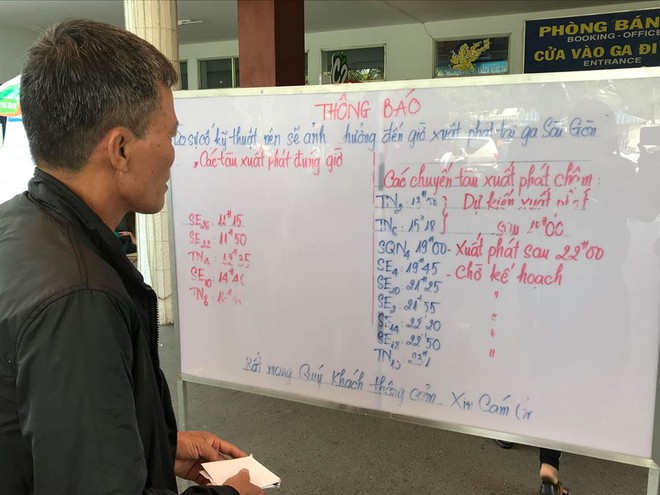 PHÒNG BÁN
BOOKING - OFFICE
CỬA VÀO GA ĐI
ENTRANCE
THÔNG BÁO
Do sự cố kỹ thuật nên sẽ ảnh hưởng đến giờ xuất phát tại ga Sài Gòn
Các tàu xuất phát đúng giờ
SE 11 15
SE22 11 50
TN
SE10 14 40
TN
Các chuyến tàu xuất phát chậm:
TN2 : Dự kiến xuất phát
TN6 : 15 18 sau
SQN4 19 00 - Xuất phát sau 22 00
SE4 19 45 - Chờ kế hoạch
SE 21 25 "
SE 21 55 "
SE 22 20 "
SE 22 50 "
TN
Rất mong Quý khách thông cảm. Xin Cám ơn